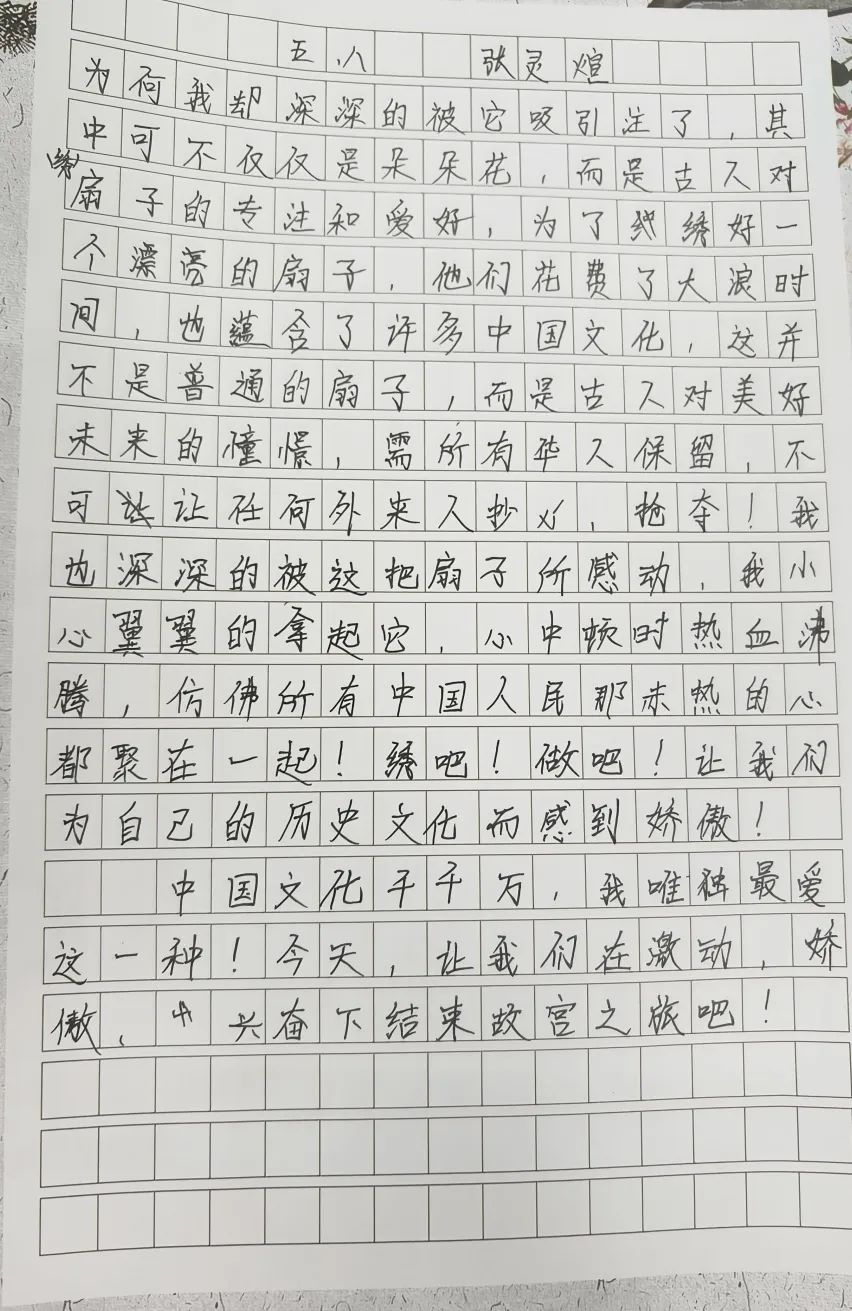 五八 张灵煊
为何我却深深的被它吸引注了，其
中可不仅仅是朵朵花，而是古人对
绣扇子的专注和爱好，为了绣好一
个漂亮的扇子，他们花费了大浪时
间，也蕴含了许多中国文化，这并
不是普通的扇子，而是古人对美好
未来的憧憬，需所有华人保留，不
可让任何外来人抄义，抢夺！我
也深深的被这把扇子所感动，我小
心翼翼的拿起它，心中顿时热血沸
腾，仿佛所有中国人民那赤热的心
都聚在一起！绣吧！做吧！让我们
为自己的历史文化而感到娇傲！
中国文化千千万，我唯独最爱
这一种！今天，让我们在激动，娇
傲、兴奋下结束故宫之旅吧！